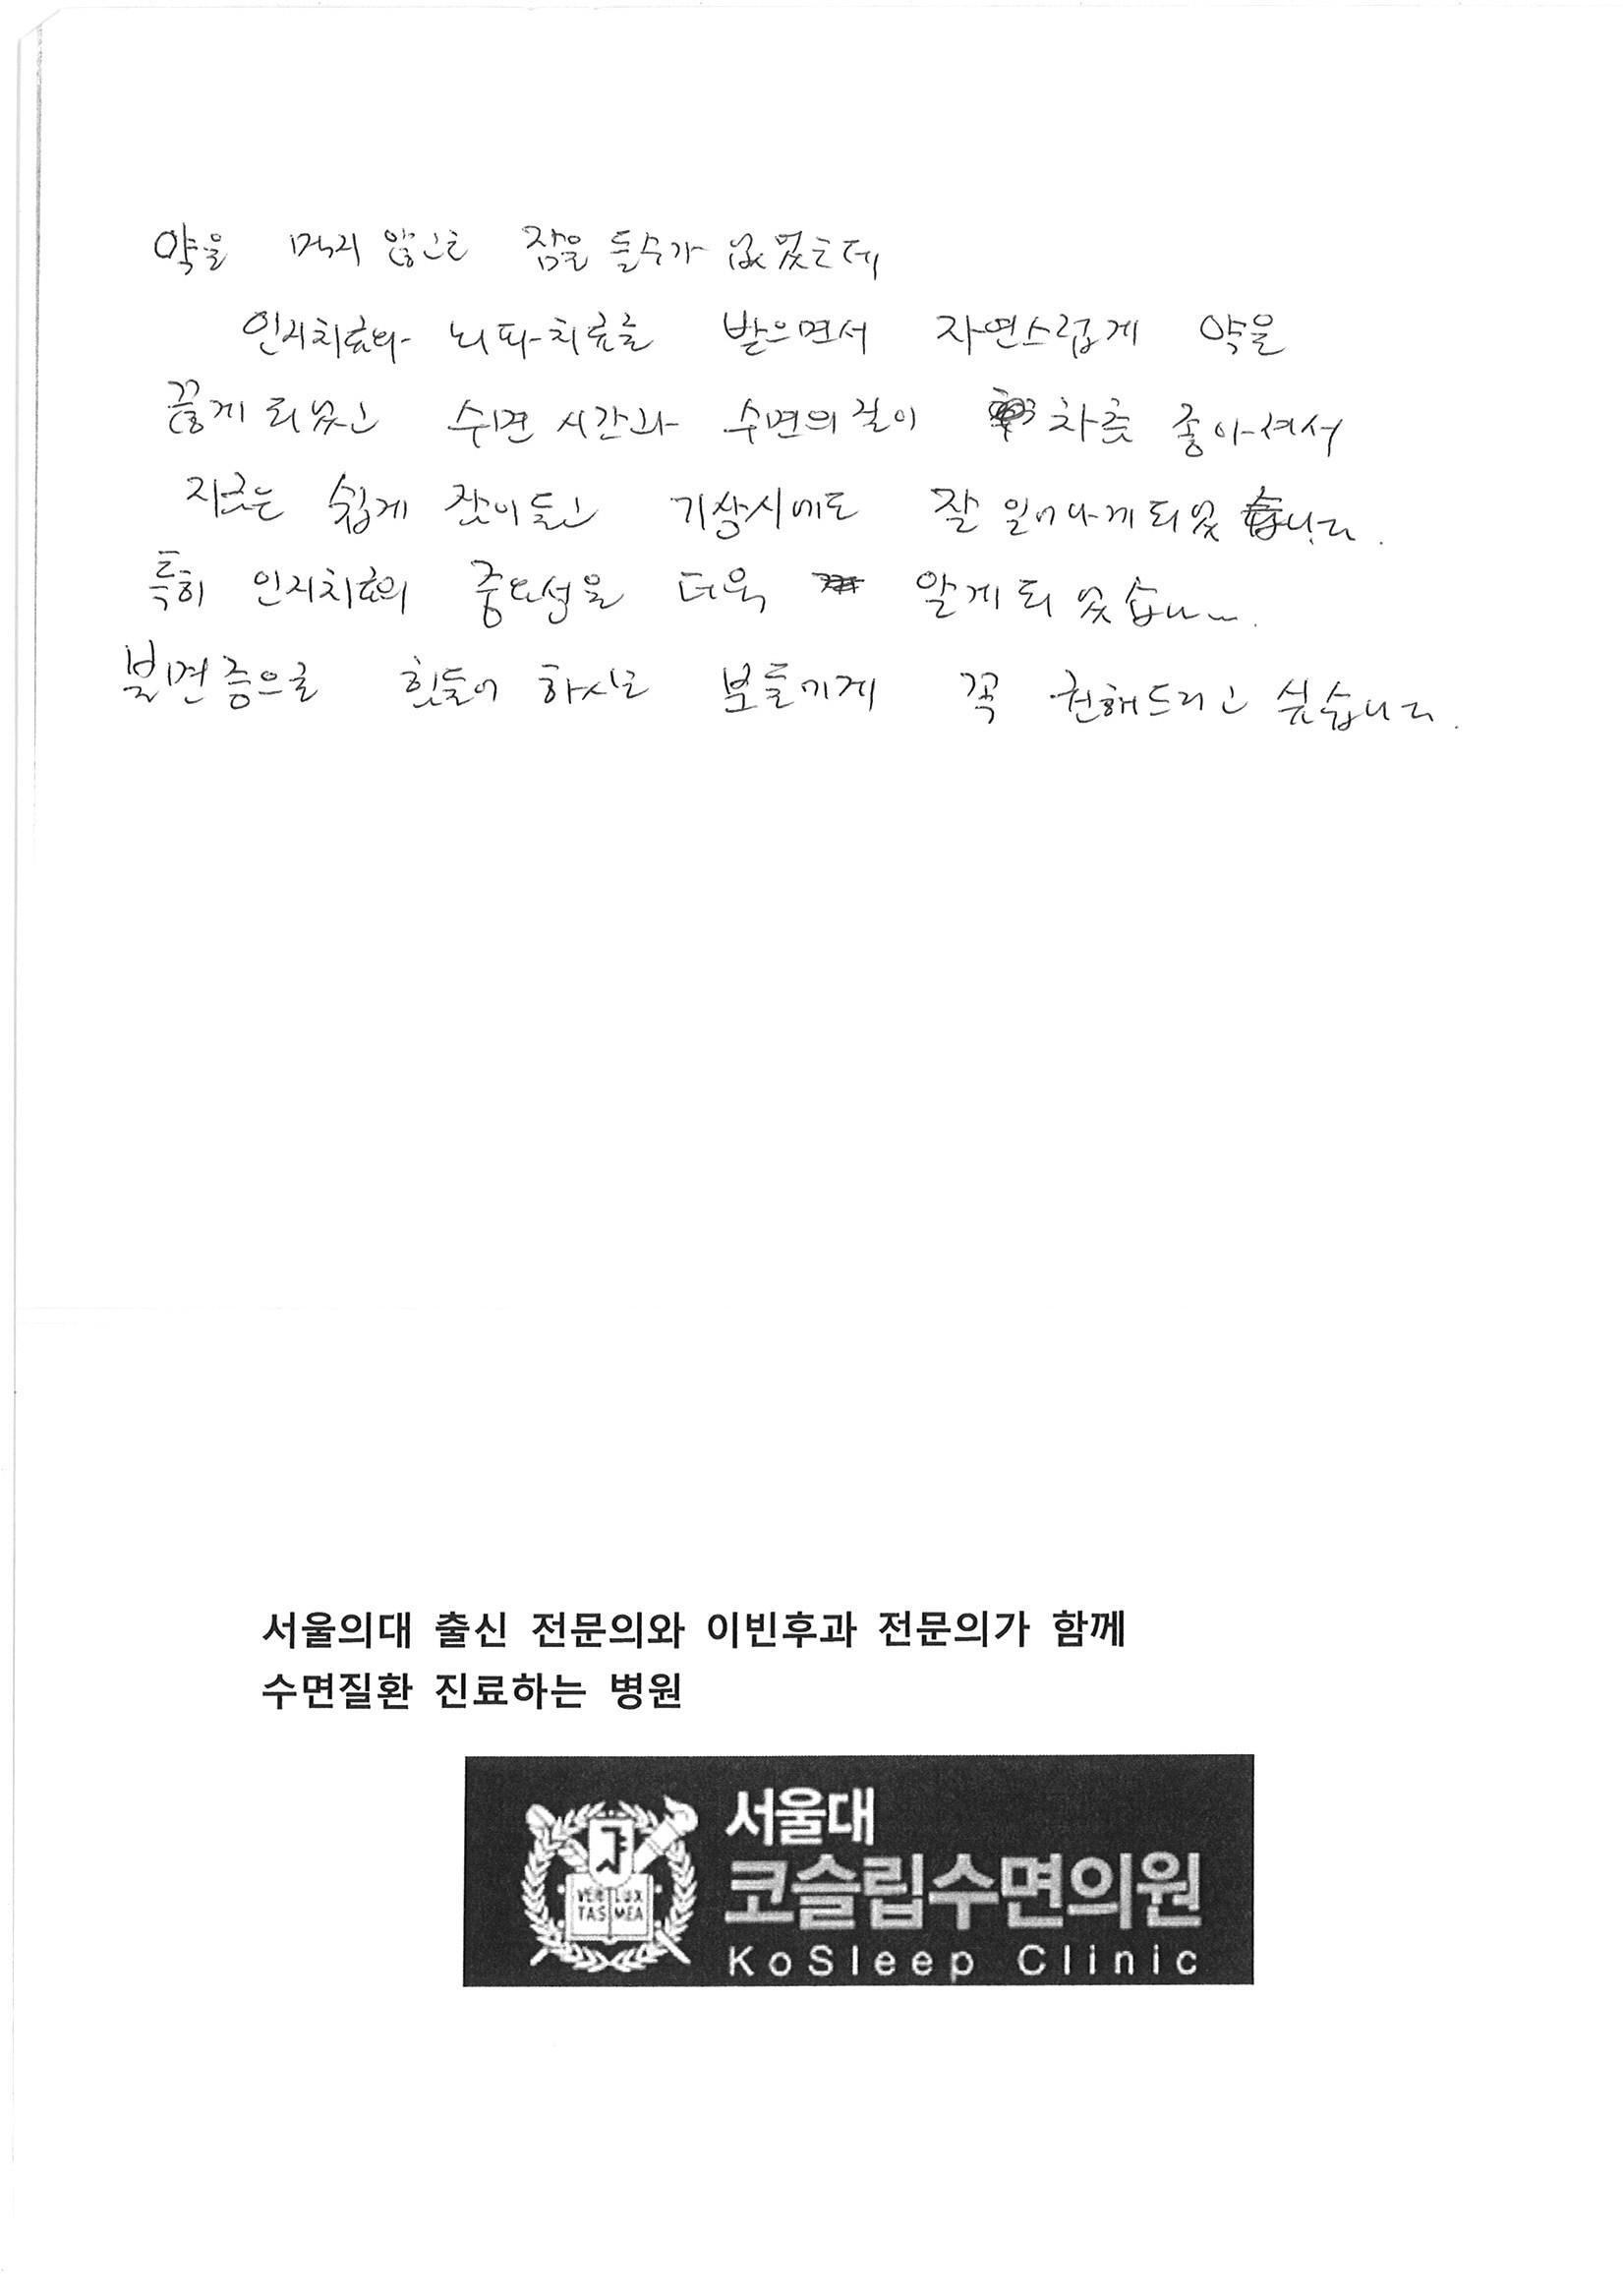 약을 먹지 않고는 잠을 들수가 없었는데
인지치료와 뇌파치료를 받으면서 자연스럽게 약을
끊게 되었고 수면 시간과 수면의 질이 차츰 좋아져서
지금은 쉽게 잠이들고 기상시에도 잘 일어나게 되었습니다.
특히 인지치료의 중요성을 더욱 알게 되었습니다.
불면증으로 힘들어 하시는 분들에게 꼭 권해드리고 싶습니다.
서울의대 출신 전문의와 이빈후과 전문의가 함께
수면질환 진료하는 병원
서울대
코슬립수면의원
KoSleep Clinic
VERI LUX
TAS MEA